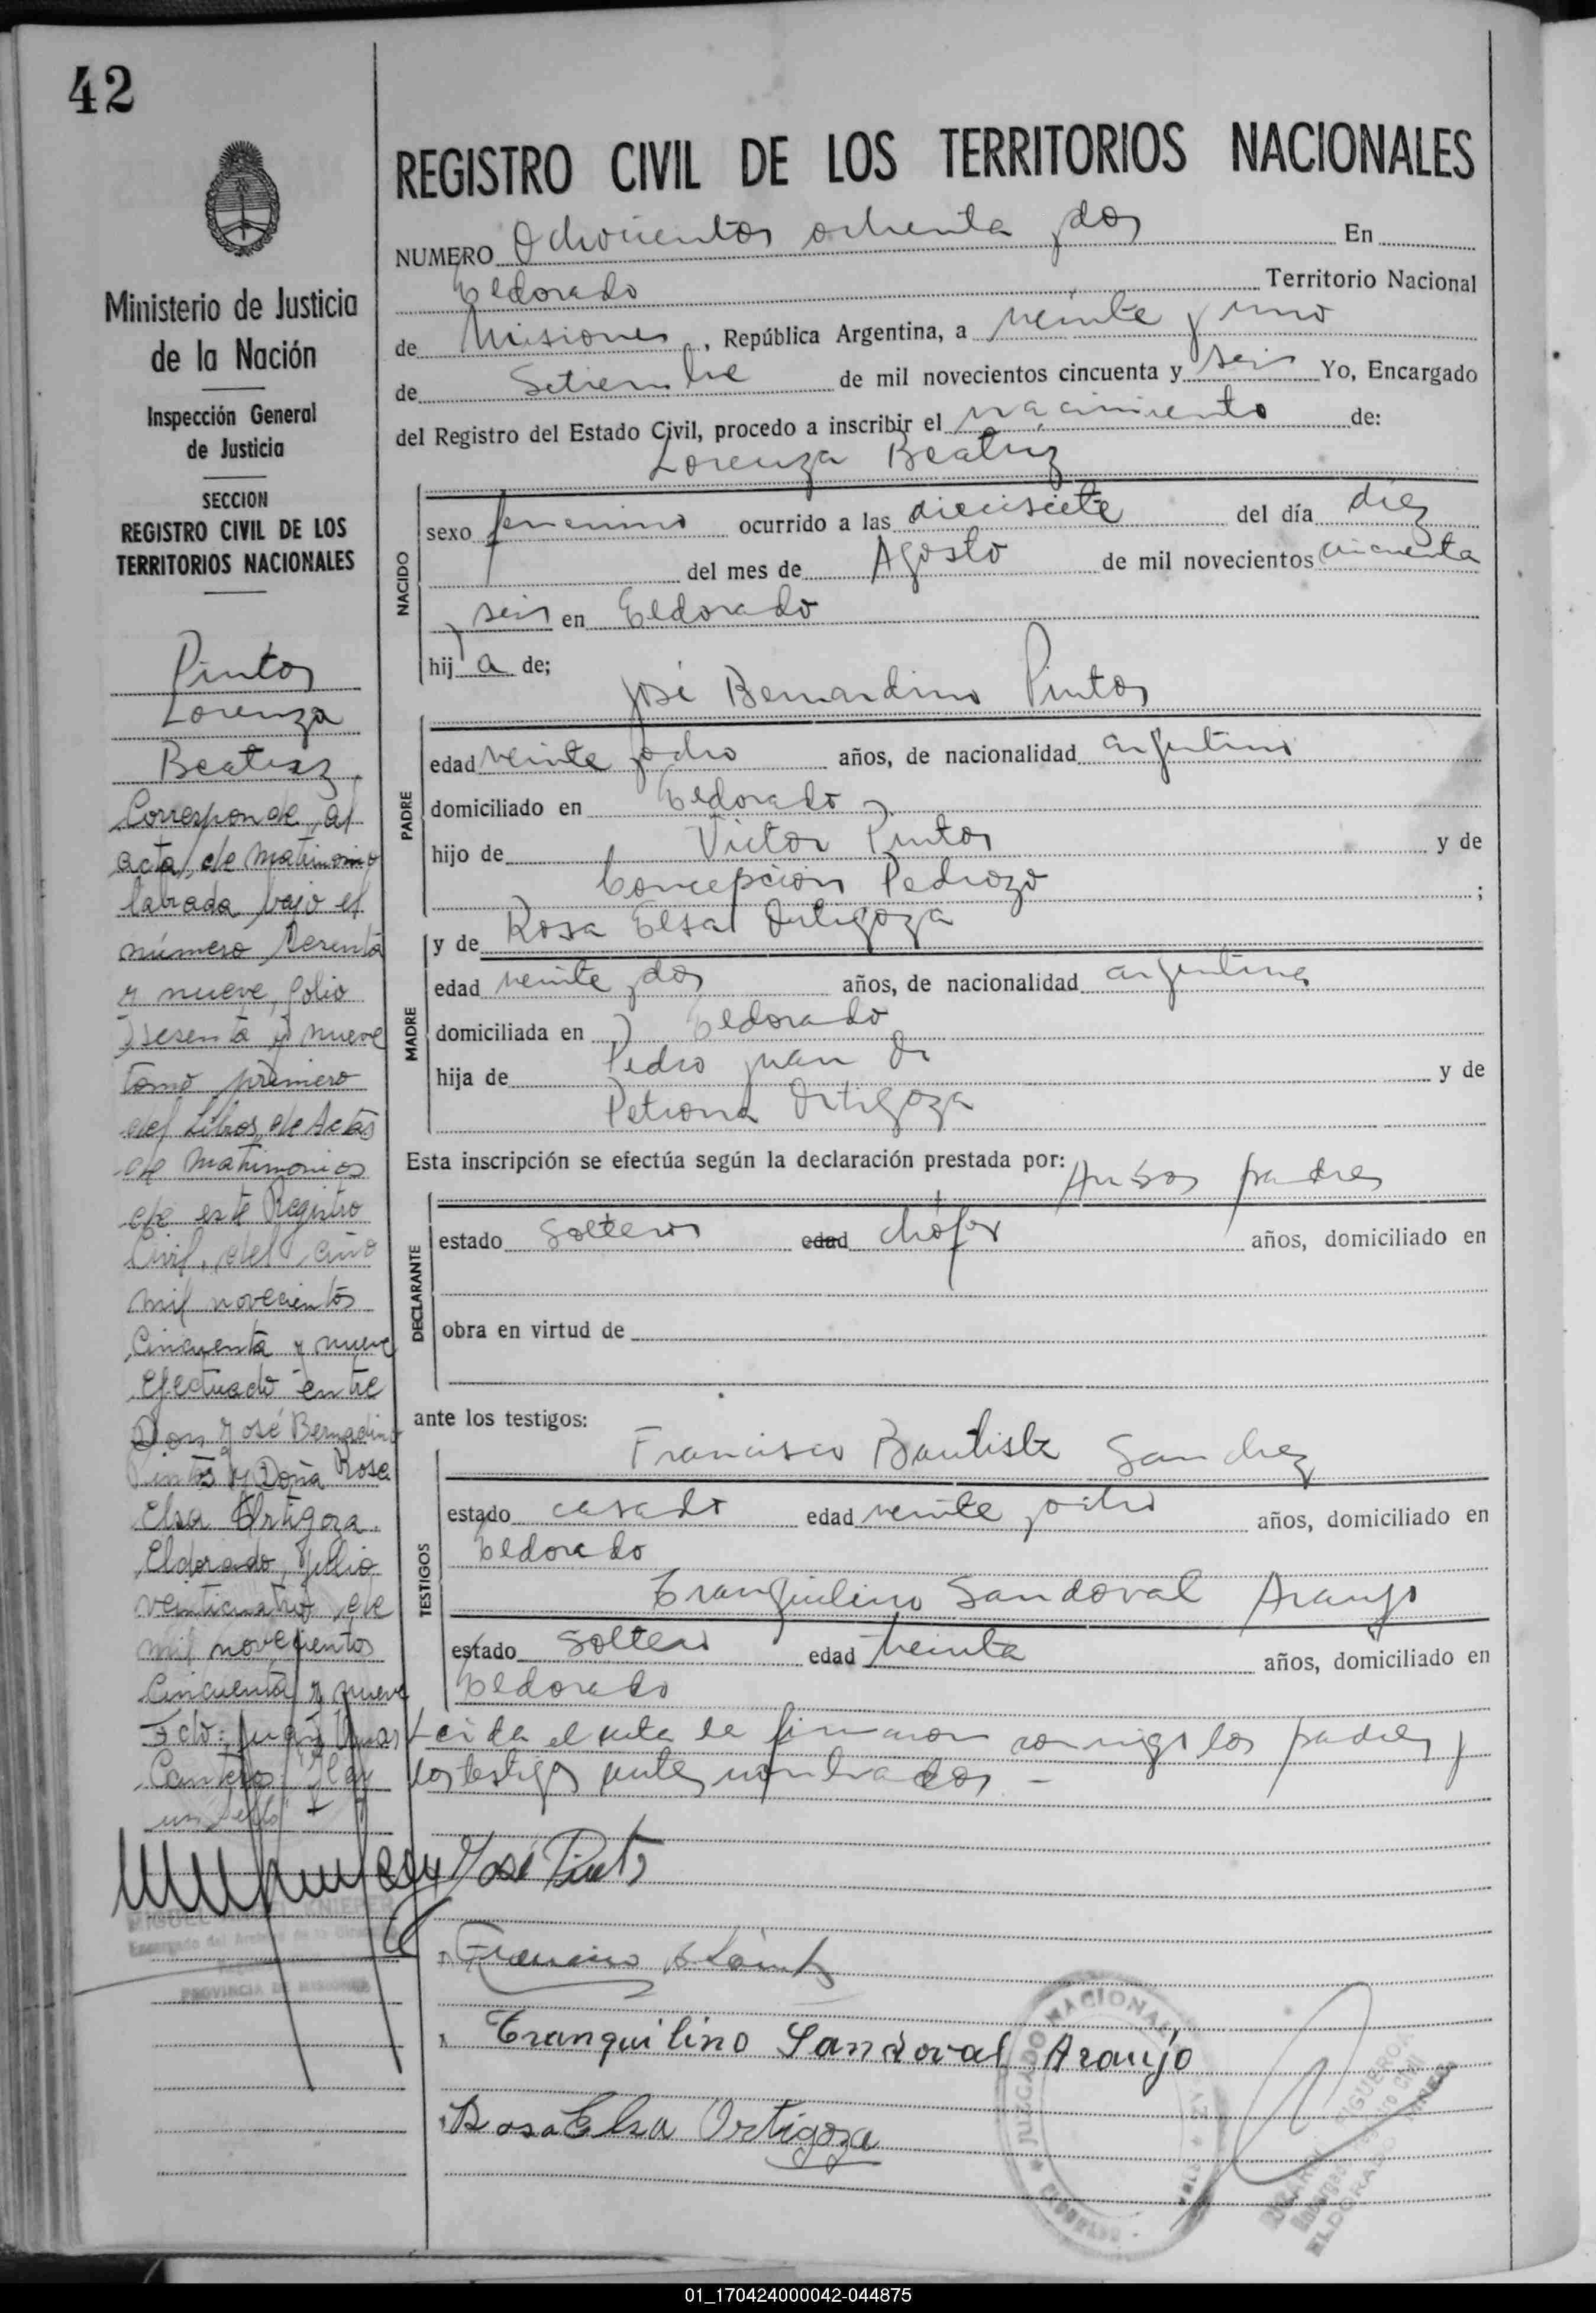 42
Ministerio de Justicia
de la Nación
Inspección General
de Justicia
SECCION
REGISTRO CIVIL DE LOS
TERRITORIOS NACIONALES
Pintos
Lorenza
Beatriz.
Corresponde al
acta de matrimonio
labrada bajo el
número sesenta
y nueve, folio
sesenta y nueve
tomo primero
del Libros de Actas
de matrimonios
de este Registro
Civil, del año
mil novecientos
Cincuenta y nueve
Efectuado entre
Don José Bernadino
Pintos y Doña Rosa
Elsa Ortigoza.
Eldorado, Julio
veinticuatro de
mil novecientos
Cincuenta y nueve
Fdo: Juan
Cantero "Hay
un sello"
PROVINCIA DE MISIONES
REGISTRO CIVIL DE LOS TERRITORIOS NACIONALES
NUMERO Ochocientos ochenta y dos En
Eldorado Territorio Nacional
de Misiones, República Argentina, a veinte y uno
de Setiembre de mil novecientos cincuenta y seis Yo, Encargado
del Registro del Estado Civil, procedo a inscribir el nacimiento de:
Lorenza Beatriz
NACIDO
sexo femenino ocurrido a las diecisiete del día diez
del mes de Agosto de mil novecientos cincuenta
y seis en Eldorado
hij a de;
José Bernardino Pintos
PADRE
edad veinte y ocho años, de nacionalidad argentino
domiciliado en Eldorado
hijo de Victor Pintos y de
Concepción Pedrozo ;
y de Rosa Elsa Ortigoza
MADRE
edad veinte y dos años, de nacionalidad argentina
domiciliada en Eldorado
hija de Pedro Juan Or y de
Petrona Ortigoza
Esta inscripción se efectúa según la declaración prestada por: Ambos padres
DECLARANTE
estado Solteros edad chófer años, domiciliado en
obra en virtud de
ante los testigos:
Francisco Bautista Sanchez
TESTIGOS
estado casado edad veinte y ocho años, domiciliado en
Eldorado
Tranquilino Sandoval Araujo
estado Soltero edad treinta años, domiciliado en
Eldorado
Leida el acta la firmaron conmigo los padres y
los testigos antes nombrados -
José Pintos
Tranquilino Sandoval Araujo
Rosa Elsa Ortigoza
JUZGADO NACIONAL
ELDORADO
01_170424000042-044875